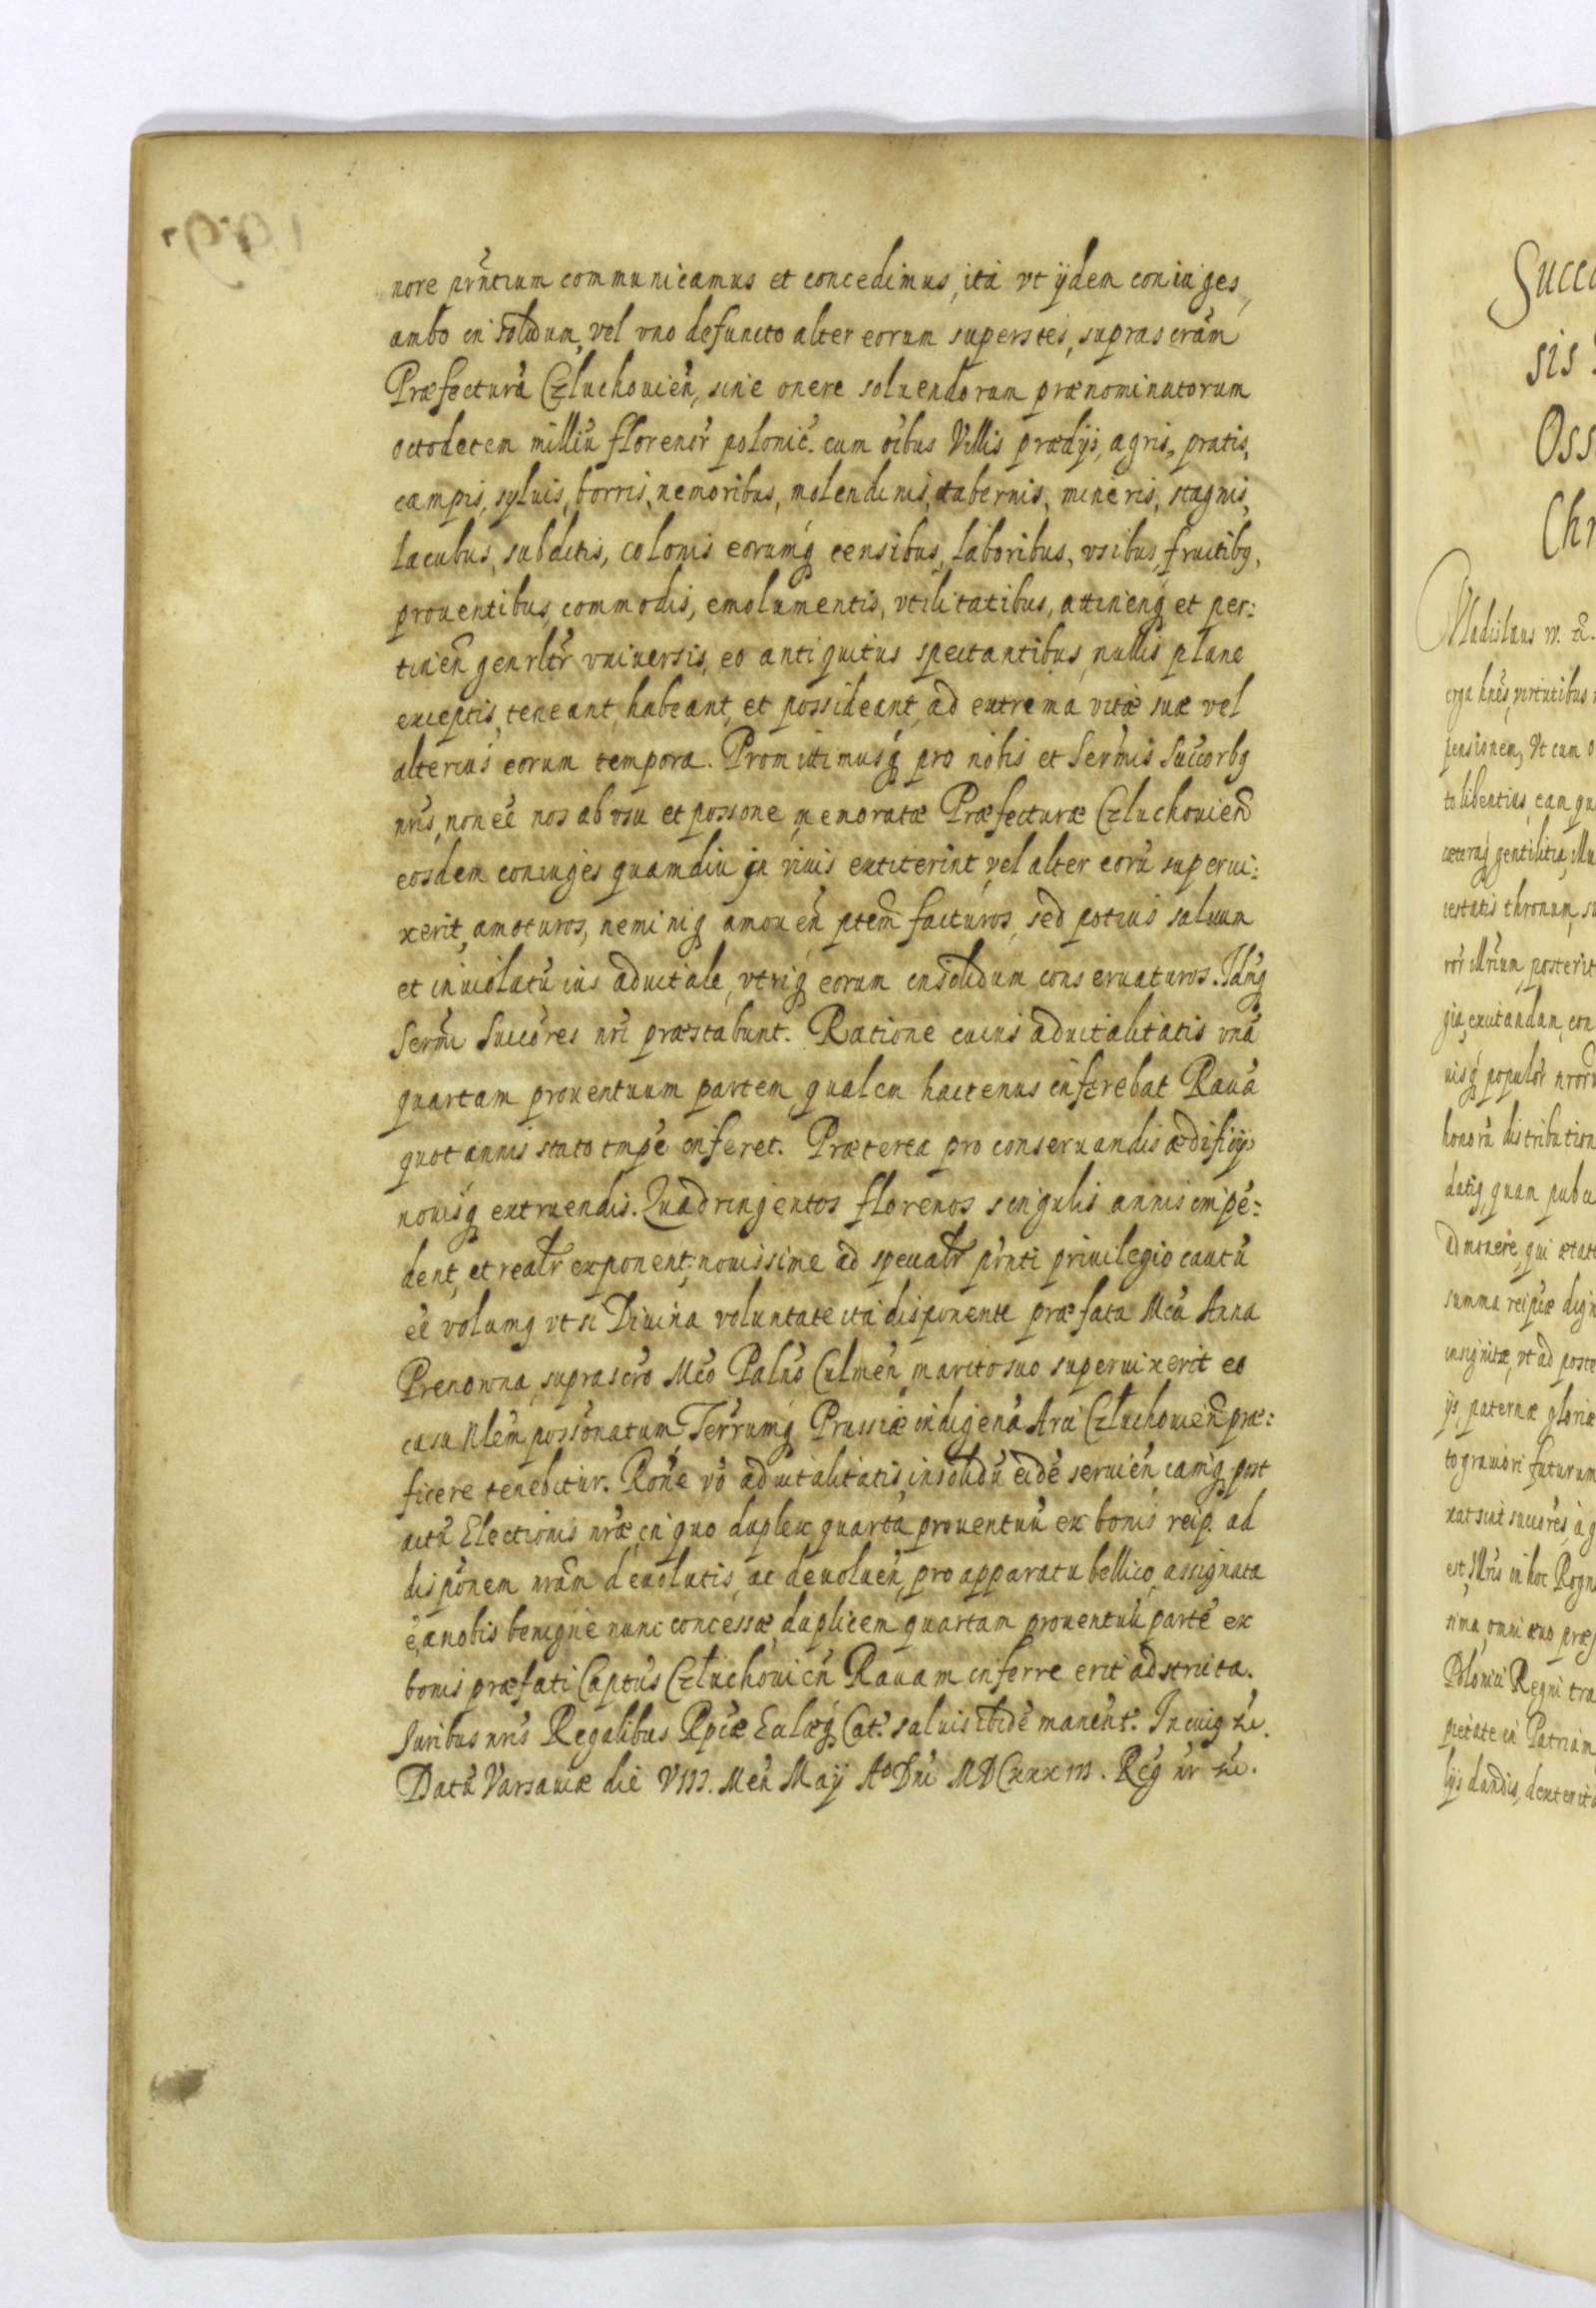 nore pr̃ntium communicamus et concedimus, ità vt ÿdem coniuges,
ambo in solidum, vel vno defuncto alter eorum superstes, suprascrãm
Præfecturã Człuchouieñ, sine onere soluendorum prænominatorum
octodecem milliũ florenor̃ polonič. cum oĩbus Villis prædijs, agris, pratis,
campis, syluis, borris, nemoribus, molendinis, tabernis, mineris, stagnis,
lacubus, subditis, colonis eorumq́ censibus, laboribus, vsibus, fructibq,
prouentibus, commodis, emolumentis, vtilitatibus, attineñq et per:
tineñ genrltr̃ vniuersis, eo antiquitus spectantibus, nullis plane
exceptis, teneant, habeant, et possideant, ad extrema vitæ suæ vel
alterius eorum tempora. Promittimusq́ pro nobis et Serm̃is Succorbq
nr̃is, non eẽ nos ab vsu et possone memoratæ Præfecturæ Człuchouieñ
eosdem coniuges quamdiu in viuis extiterint, vel alter eorũ superui:
xerit, amoturos, neminiq amoueñ ptem̃ facturos, sed potius saluum
et inuiolatũ ius aduitale, vtriq eorum insolidum conseruaturos. Idñq
Serm̃i Succores nr̃i præstabunt. Ratione cuius aduitalitatis vnã
quartam prouentuum partem, qualem hactenus inferebat Rauã
quotannis stato tmpẽ inferet. Præterea pro conseruandis ædificijs
nouisq́ extruendis. Quadringentos florenos singulis annis impẽ:
dent, et realr̃ exponent; nouissime ad specialr̃ pr̃nti priuilegio cautũ
eẽ volumq vt si Diuina voluntate ita disponente præfata Mcã Anna
Prenowna, suprascr̃o Mcõ Palnõ Culmeñ, marito suo superuixerit eo
casu Nlem̃ possonatum Terrumq́ Prussiæ indigenã Arci Człuchouieñ præ:
ficere tenebitur. Ronẽ võ aduitalitatis, insolidũ eidẽ seruieñ, eamq́ post
actũ Electionis nr̃æ, in quo duplex quarta prouentuũ ex bonis reip. ad
disponem nr̃am deuolutis, ac deuolueñ, pro apparatu bellico, assignata
ẽ, a nobis benigne nunc concessæ, duplicem quartam prouentuũ partẽ ex
bonis præfati Captus Człuchouieñ Rauam inferre erit adstricta.
Iuribus nr̃is Regalibus Rpcæ Eclæq́ Cat. saluis ibidẽ maneñt. In cuiq ꝛc.
Datũ Varsauiæ die VIII. Meñ Maij Aº Dñi MDCxxxııı. Reg nr̃ ꝛc.
Succ
sis
Oss
Chr
Vladislaus IV. ꝛc.
erga hñes, virtutibus
pensionem, Vt cum o
to libentius, eam qu
cæteraq́ gentilitia, illu
iestatis thronum, su
ror̃ illr̃ium, posterit
gia, excitandam, con
uisq́ populor̃ nror̃
honorũ distribution
datiq, quam pub
admonere, qui ætate
summa reipcæ dign
insignitæ, vt ad poste
ijs, paternæ gloriæ
to grauiori futurum
xat sint succores, ag
est, Illr̃is in hoc Regn
sima, omni æuo præ
Polonici Regni tra
pietate in Patriam
lijs dandis, dexterit